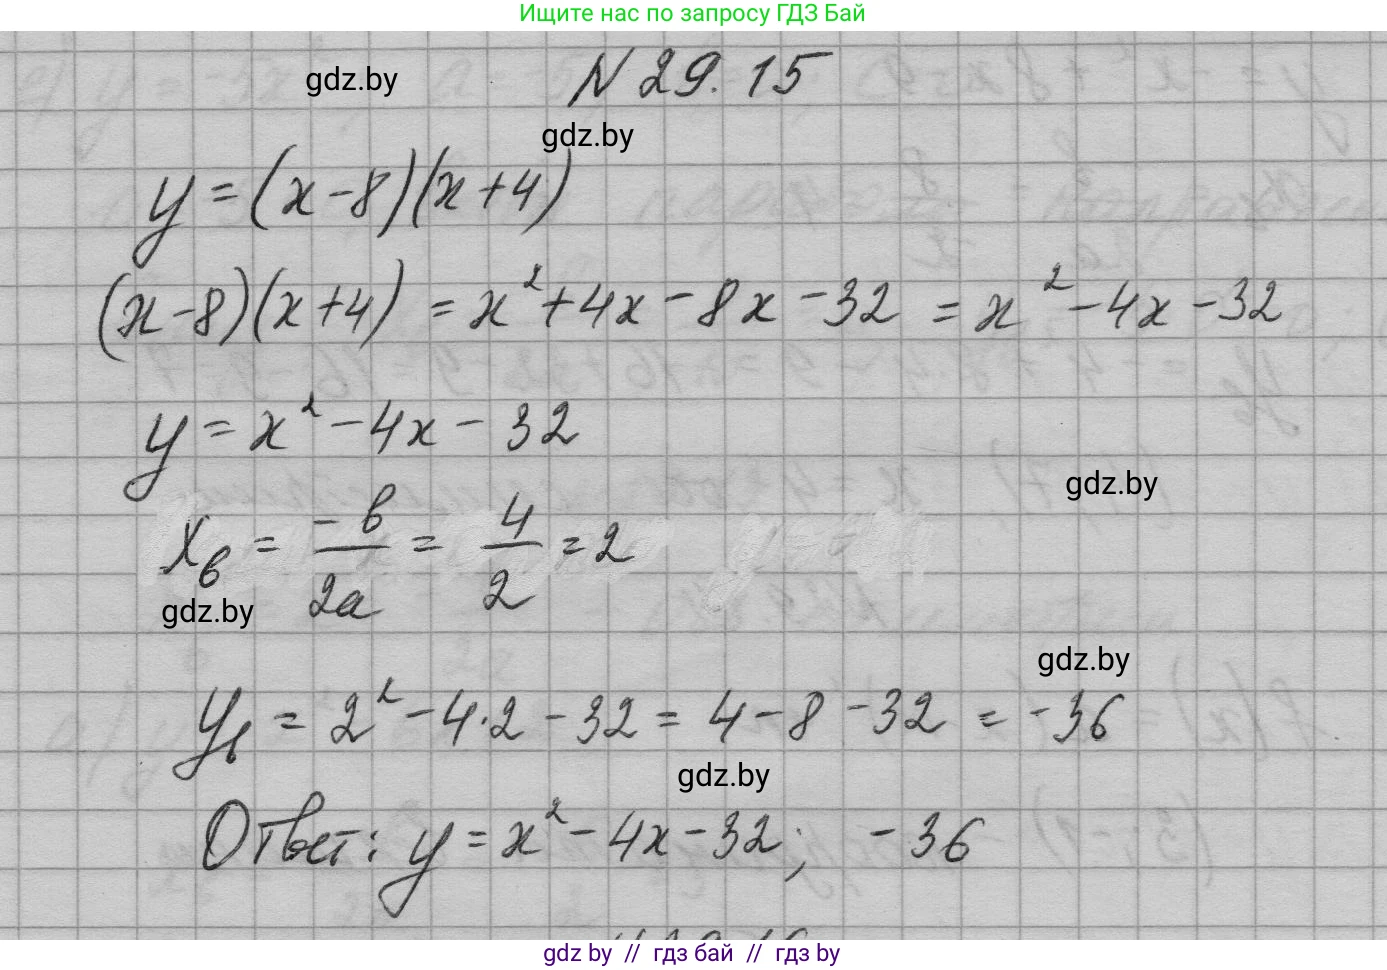 Ищите нас по запросу ГДЗ Бай
gdz.by
N 29.15
gdz.by
y = (x-8)(x+4)
(x-8)(x+4) = x² + 4x - 8x - 32 = x² - 4x - 32
y = x² - 4x - 32
gdz.by
xв = -b/2a = 4/2 = 2
gdz.by
gdz.by
yв = 2² - 4·2 - 32 = 4 - 8 - 32 = -36
gdz.by
Ответ: y = x² - 4x - 32; -36
gdz by // гдз бай // гдз by